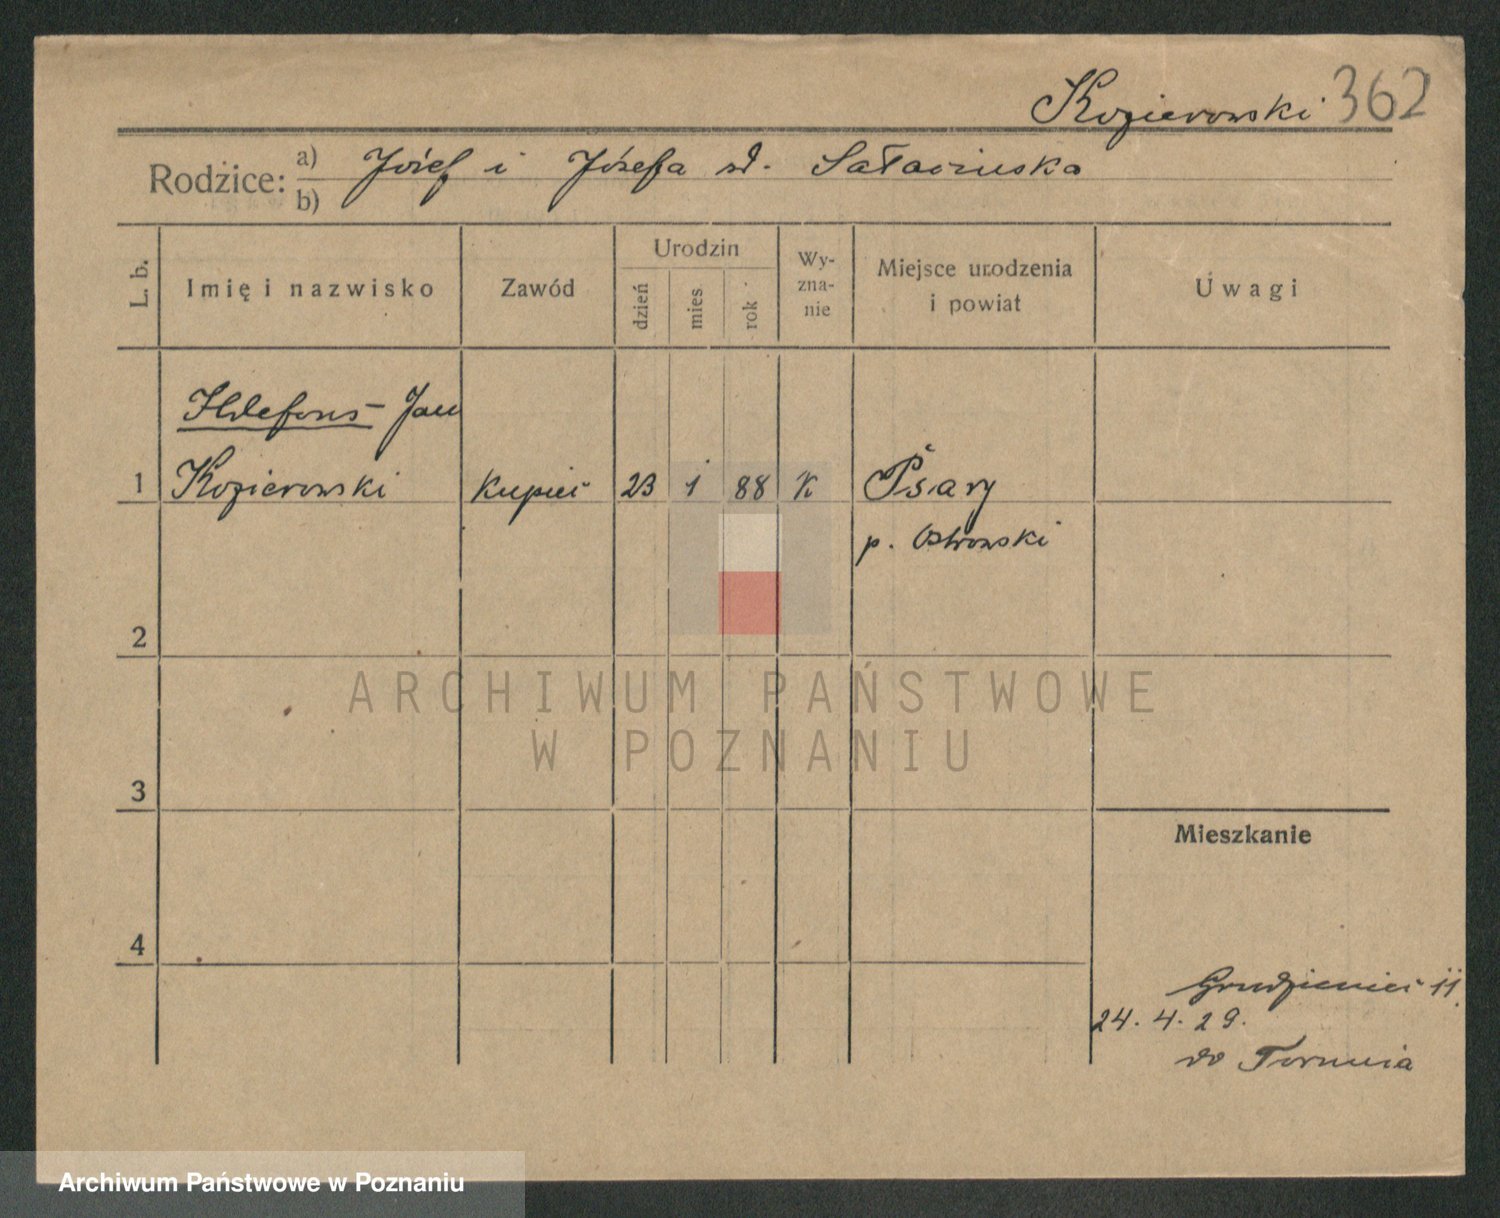 Kozierowski 362
Rodzice: a) b) Józef i Józefa
L. b. Imię i nazwisko Zawód Urodzin dzień mies rok Wy-zna-nie Miejsce urodzenia i powiat Uwagi
Ildefons - Jan
1 Kozierowski kupiec 23 1 88 K Psary
p. Ostrowski
2
ARCHIWUM PAŃSTWOWE
W POZNANIU
3
Mieszkanie
4
Grudzieniec 11.
24. 4. 29.
do Torunia
Archiwum Państwowe w Poznaniu